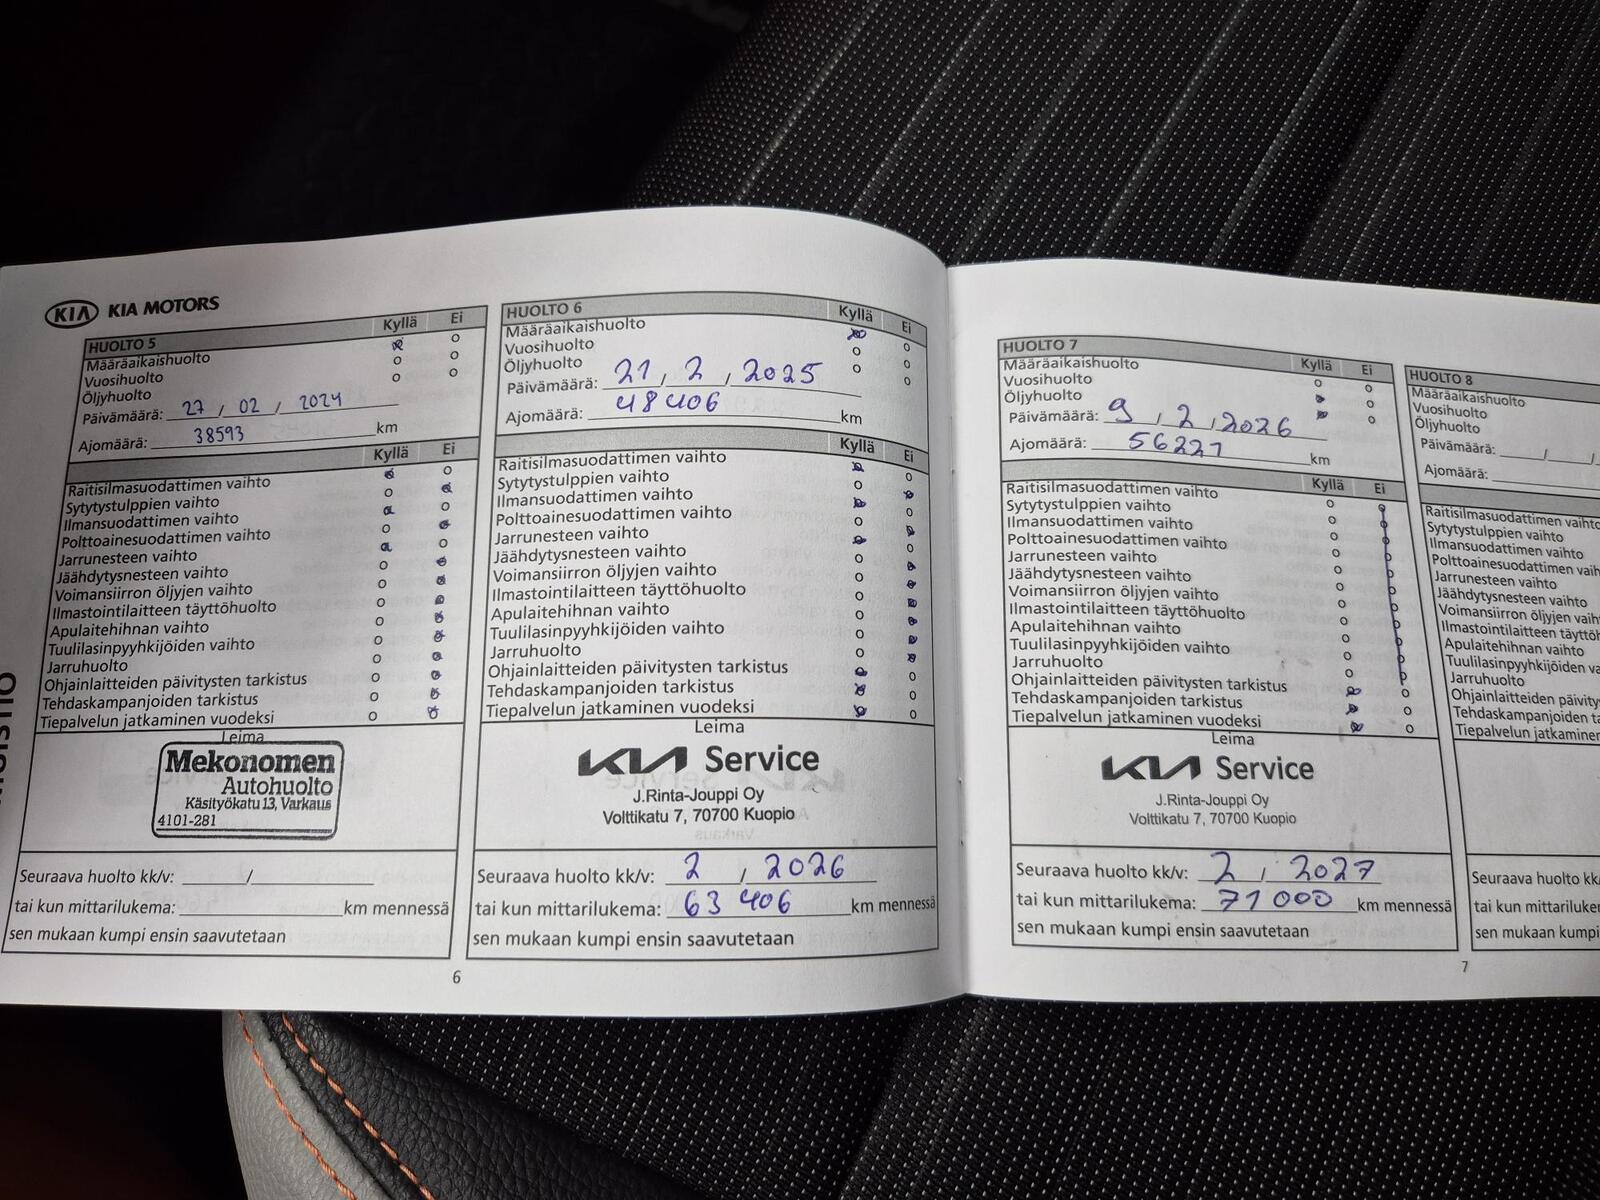 KIA KIA MOTORS
HUOLTO 5
Kyllä Ei
Määräaikaishuolto
Vuosihuolto
Öljyhuolto
Päivämäärä: 27 / 02 / 2024
Ajomäärä: 38593 km
Kyllä Ei
Raitisilmasuodattimen vaihto
Sytytystulppien vaihto
Ilmansuodattimen vaihto
Polttoainesuodattimen vaihto
Jarrunesteen vaihto
Jäähdytysnesteen vaihto
Voimansiirron öljyjen vaihto
Ilmastointilaitteen täyttöhuolto
Apulaitehihnan vaihto
Tuulilasinpyyhkijöiden vaihto
Jarruhuolto
Ohjainlaitteiden päivitysten tarkistus
Tehdaskampanjoiden tarkistus
Tiepalvelun jatkaminen vuodeksi
Leima
Mekonomen
Autohuolto
Käsityökatu 13, Varkaus
4101-281
Seuraava huolto kk/v: /
tai kun mittarilukema: km mennessä
sen mukaan kumpi ensin saavutetaan
HUOLTO 6
Kyllä Ei
Määräaikaishuolto
Vuosihuolto
Öljyhuolto
Päivämäärä: 21 / 2 / 2025
Ajomäärä: 48406 km
Kyllä Ei
Raitisilmasuodattimen vaihto
Sytytystulppien vaihto
Ilmansuodattimen vaihto
Polttoainesuodattimen vaihto
Jarrunesteen vaihto
Jäähdytysnesteen vaihto
Voimansiirron öljyjen vaihto
Ilmastointilaitteen täyttöhuolto
Apulaitehihnan vaihto
Tuulilasinpyyhkijöiden vaihto
Jarruhuolto
Ohjainlaitteiden päivitysten tarkistus
Tehdaskampanjoiden tarkistus
Tiepalvelun jatkaminen vuodeksi
Leima
KIA Service
J.Rinta-Jouppi Oy
Volttikatu 7, 70700 Kuopio
Seuraava huolto kk/v: 2 / 2026
tai kun mittarilukema: 63 406 km mennessä
sen mukaan kumpi ensin saavutetaan
6
HUOLTO 7
Kyllä Ei
Määräaikaishuolto
Vuosihuolto
Öljyhuolto
Päivämäärä: 9 / 2 / 2026
Ajomäärä: 56227 km
Kyllä Ei
Raitisilmasuodattimen vaihto
Sytytystulppien vaihto
Ilmansuodattimen vaihto
Polttoainesuodattimen vaihto
Jarrunesteen vaihto
Jäähdytysnesteen vaihto
Voimansiirron öljyjen vaihto
Ilmastointilaitteen täyttöhuolto
Apulaitehihnan vaihto
Tuulilasinpyyhkijöiden vaihto
Jarruhuolto
Ohjainlaitteiden päivitysten tarkistus
Tehdaskampanjoiden tarkistus
Tiepalvelun jatkaminen vuodeksi
Leima
KIA Service
J.Rinta-Jouppi Oy
Volttikatu 7, 70700 Kuopio
Seuraava huolto kk/v: 2 / 2027
tai kun mittarilukema: 71 000 km mennessä
sen mukaan kumpi ensin saavutetaan
HUOLTO 8
Määräaikaishuolto
Vuosihuolto
Öljyhuolto
Päivämäärä: / /
Ajomäärä:
Raitisilmasuodattimen vaihto
Sytytystulppien vaihto
Ilmansuodattimen vaihto
Polttoainesuodattimen vaih
Jarrunesteen vaihto
Jäähdytysnesteen vaihto
Voimansiirron öljyjen vaihto
Ilmastointilaitteen täyttöh
Apulaitehihnan vaihto
Tuulilasinpyyhkijöiden va
Jarruhuolto
Ohjainlaitteiden päivitys
Tehdaskampanjoiden ta
Tiepalvelun jatkaminen
Seuraava huolto kk/
tai kun mittarilukem
sen mukaan kumpi
7